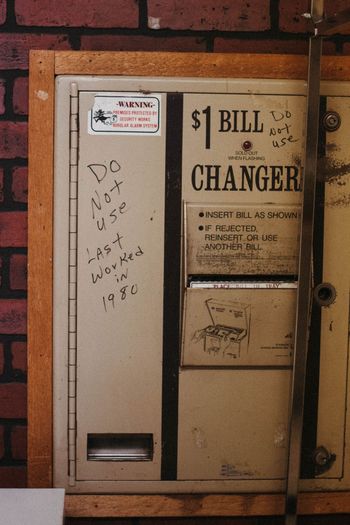 -WARNING-
PREMISES PROTECTED BY
SECURITY WORKS
BURGLAR ALARM SYSTEM
$1 BILL
Do
Not
use
SOLD OUT
WHEN FLASHING
CHANGER
Do
Not
use
Last
Worked
in
1980
• INSERT BILL AS SHOWN
• IF REJECTED,
REINSERT OR USE
ANOTHER BILL
PLACE BILL IN TRAY